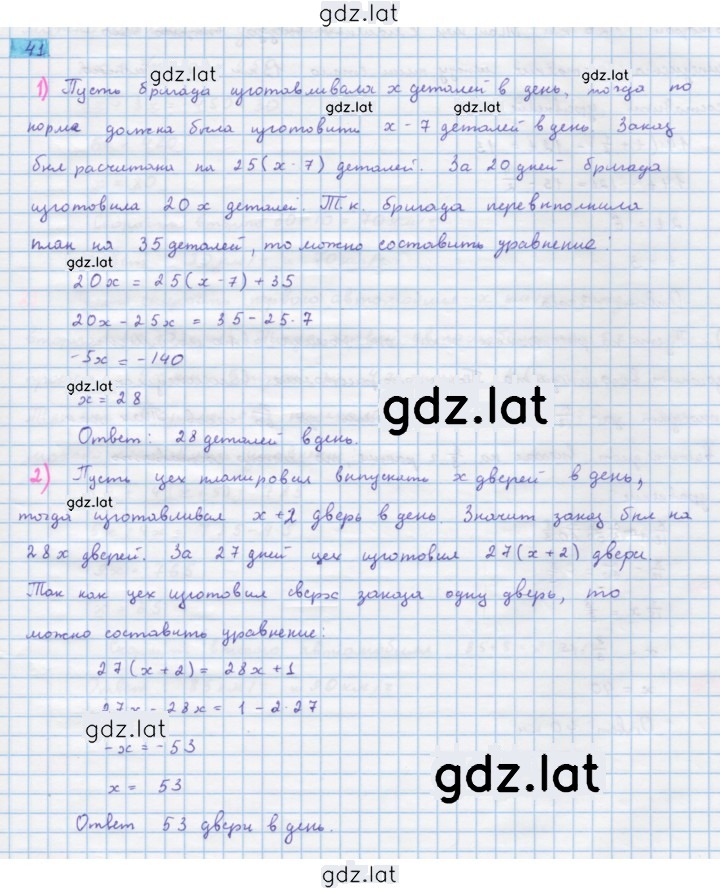 gdz.lat
41
gdz.lat
gdz.lat
1) Пусть бригада изготавливала x деталей в день, тогда по
gdz.lat
gdz.lat
норме должна была изготовить x - 7 деталей в день. Заказ
был расчитана на 25(x - 7) деталей. За 20 дней бригада
изготовила 20x деталей. Т.к. бригада перевыполнила
план на 35 деталей, то можно составить уравнение:
gdz.lat
20x = 25(x - 7) + 35
20x - 25x = 35 - 25·7
-5x = -140
gdz.lat
x = 28
gdz.lat
Ответ: 28 деталей в день.
2) Пусть цех планировал выпускать x дверей в день,
gdz.lat
тогда изготавливал x + 2 дверь в день. Значит заказ был на
28x дверей. За 27 дней цех изготовил 27(x + 2) двери.
Так как цех изготовил сверх заказа одну дверь, то
можно составить уравнение:
27(x + 2) = 28x + 1
27x - 28x = 1 - 2·27
gdz.lat
-x = -53
gdz.lat
x = 53
Ответ 53 двери в день.
gdz.lat